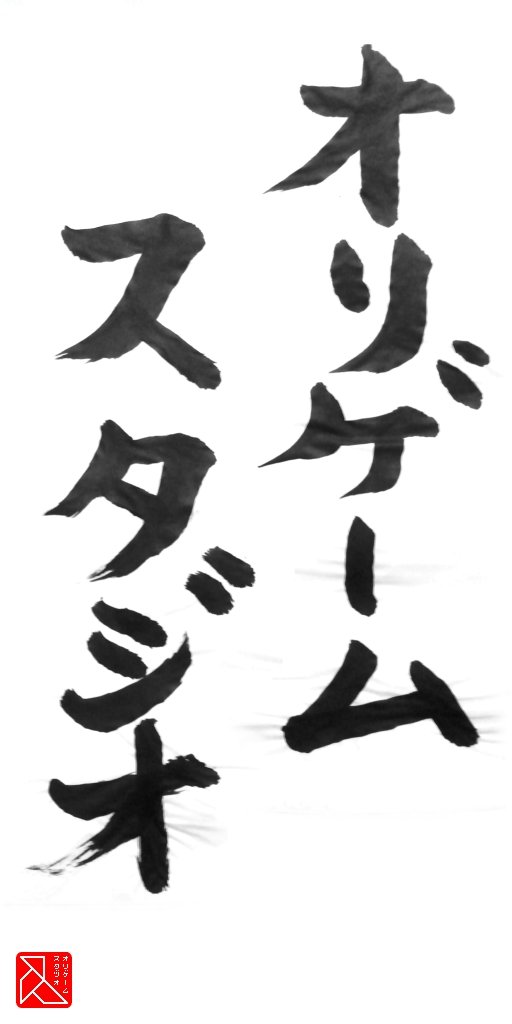 オリゲーム
スタジオ
オリゲーム
スタジオ